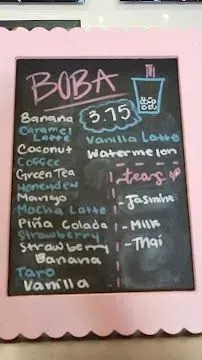 BOBA
3.75
Banana
Caramel
Latte
Coconut
Coffee
Green Tea
Honeydew
Mango
Mocha Latte
Piña Colada
Strawberry
Strawberry
Banana
Taro
Vanilla
Vanilla Latte
Watermelon
teas
-Jasmine
-Milk
-Thai